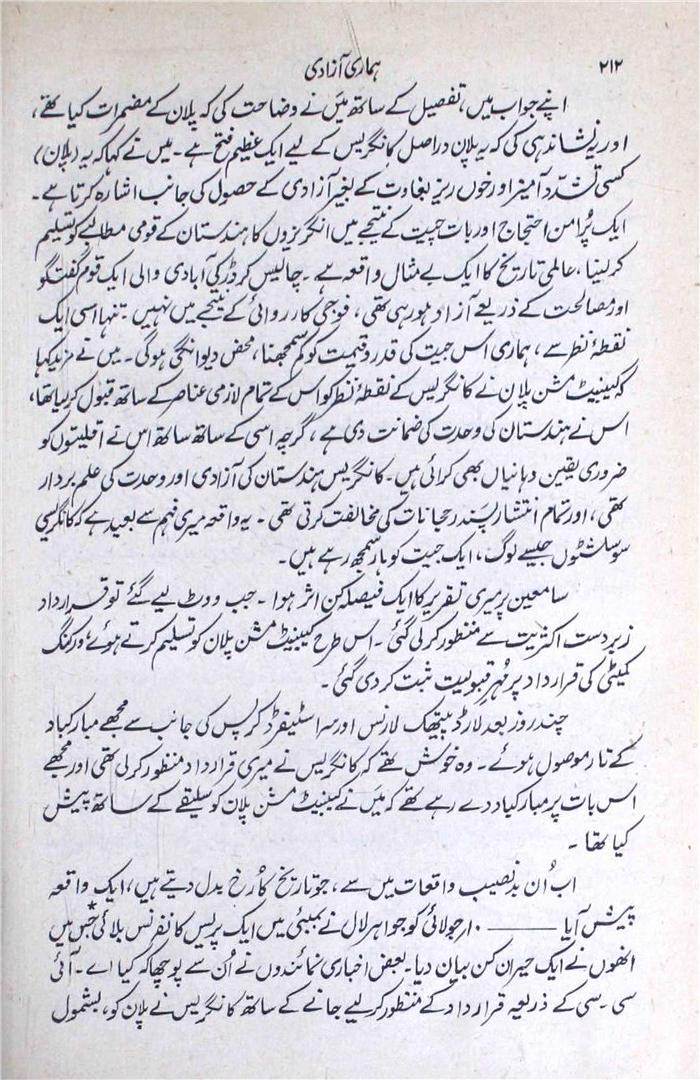 ۲۱۲
ہماری آزادی
اپنے جواب میں، تفصیل کے ساتھ میں نے وضاحت کی کہ پلان کے مضمرات کیا تھے،
اور یہ نشاندہی کی کہ یہ پلان دراصل کانگریس کے لیے ایک عظیم فتح ہے۔ میں نے کہا کہ یہ (پلان)
کسی تشدّد آمیز اور خوں ریز بغاوت کے بغیر آزادی کے حصول کی جانب اشارہ کرتا ہے۔
ایک پُرامن احتجاج اور بات چیت کے نتیجے میں انگریزوں کا ہندستان کے قومی مطالبے کو تسلیم
کر لینا، عالمی تاریخ کا ایک بے مثال واقعہ ہے۔ چالیس کروڑ کی آبادی والی ایک قوم گفتگو
اور مصالحت کے ذریعے آزاد ہو رہی تھی، فوجی کارروائی کے نتیجے میں نہیں۔ تنہا اسی ایک
نقطۂ نظر سے، ہماری اس جیت کی قدر و قیمت کو کم سمجھنا، محض دیوانگی ہوگی۔ میں نے مزید کہا
کہ کیبنیٹ مشن پلان نے کانگریس کے نقطۂ نظر کو اس کے تمام لازمی عناصر کے ساتھ قبول کر لیا تھا،
اس نے ہندستان کی وحدت کی ضمانت دی ہے، گرچہ اسی کے ساتھ ساتھ اس نے اقلیتوں کو
ضروری یقین دہانیاں بھی کرائی ہیں۔ کانگریس ہندستان کی آزادی اور وحدت کی علم بردار
تھی، اور تمام انتشار پسند رجحانات کی مخالفت کرتی تھی۔ یہ واقعہ میری فہم سے بعید ہے کہ کانگریسی
سوشلسٹوں جیسے لوگ، ایک جیت کو ہار سمجھ رہے ہیں۔
سامعین پر میری تقریر کا ایک فیصلہ کن اثر ہوا۔ جب ووٹ لیے گئے تو قرارداد
زبردست اکثریت سے منظور کر لی گئی۔ اس طرح کیبنیٹ مشن پلان کو تسلیم کرتے ہوئے، ورکنگ
کمیٹی کی قرارداد پر مُہرِ قبولیت ثبت کر دی گئی۔
چند روز بعد لارڈ پیتھک لارنس اور سر اسٹیفرڈ کرپس کی جانب سے مجھے مبارکباد
کے تار موصول ہوئے۔ وہ خوش تھے کہ کانگریس نے میری قرارداد منظور کر لی تھی اور مجھے
اس بات پر مبارکباد دے رہے تھے کہ میں نے کیبنیٹ مشن پلان کو سلیقے کے ساتھ پیش
کیا تھا۔
اب اُن بدنصیب واقعات میں سے، جو تاریخ کا رُخ بدل دیتے ہیں، ایک واقعہ
پیش آیا ——— ۱۰؍جولائی کو جواہر لال نے بمبئی میں ایک پریس کانفرنس بلائی* جس میں
انھوں نے ایک حیران کن بیان دیا۔ بعض اخباری نمائندوں نے اُن سے پوچھا کہ کیا اے۔ آئی
سی۔ سی کے ذریعہ قرارداد کے منظور کر لیے جانے کے ساتھ کانگریس نے پلان کو، بشمول